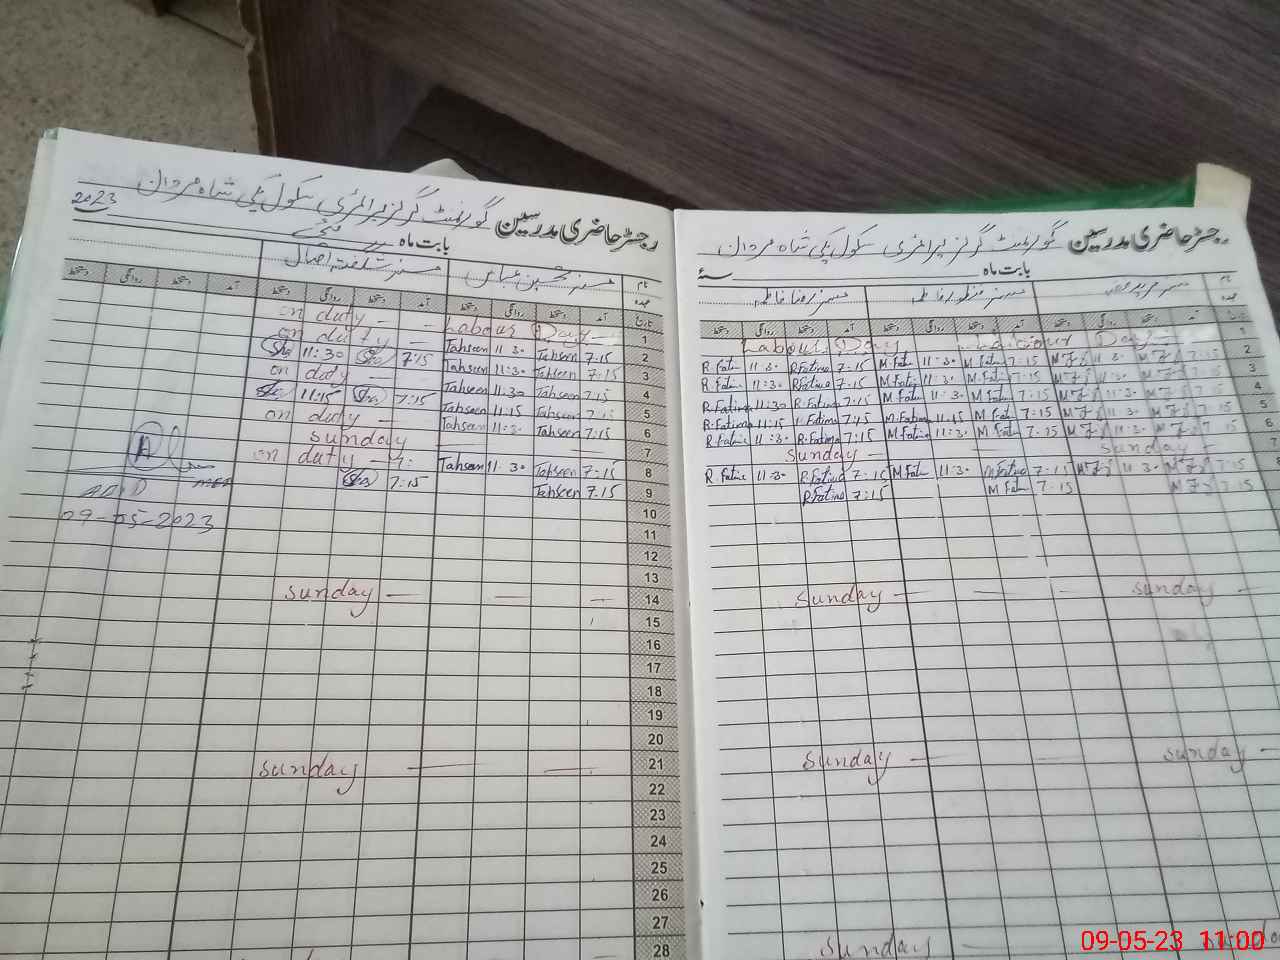 رجسٹر حاضری مدرسین گورنمنٹ گرلز پرائمری سکول پکی شاہ مردان
بابت ماہ مئی 2023
نام مسز تحسین عباس مسز شگفتہ
عہدہ
تاریخ آمد دستخط روانگی دستخط آمد دستخط روانگی دستخط آمد دستخط روانگی دستخط
on duty - - Labour Day - 1
on duty - - Tahseen 11:30 Tahseen 7:15 2
Sha 11:30 Sha 7:15 Tahseen 11:30 Tahseen 7:15 3
on duty Tahseen 11:30 Tahseen 7:15 4
Sha 11:15 Sha 7:15 Tahseen 11:15 Tahseen 7:15 5
on duty - Tahseen 11:30 Tahseen 7:15 6
Sunday — — 7
on duty - 7: Tahseen 11:30 Tahseen 7:15 8
Sha 7:15 Tahseen 7.15 9
09-05-2023 10
11
12
13
Sunday — — — 14
15
16
17
18
19
20
Sunday — — 21
22
23
24
25
26
27
28
رجسٹر حاضری مدرسین گورنمنٹ گرلز پرائمری سکول پکی شاہ مردان
بابت ماہ سنہ
نام مسز منظور فاطمہ مسز رضا فاطمہ
عہدہ
تاریخ آمد دستخط روانگی دستخط آمد دستخط روانگی دستخط آمد دستخط روانگی دستخط
Labour Day Labour Day - 1
R.Fatim 11:30 R.Fatima 7:15 M.Fatim 11:30 M.Fatim 7:15 11:30 7:15 2
R.Fatim 11:30 R.Fatima 7:15 M.Fatim 11:30 M.Fatim 7:15 11:30 7:15 3
R.Fatima 11:30 R.Fatima 7:15 M.Fatim 11:30 M.Fatim 7:15 11:30 7:15 4
R.Fatima 11:15 R.Fatima 7:15 M.Fatima 11:15 M.Fatim 7:15 11:30 7:15 5
R.Fatima 11:30 R.Fatima 7:15 M.Fatim 11:30 M.Fatim 7:15 11:30 7:15 6
Sunday - Sunday -
R.Fatima 11:30 R.Fatima 7:15 M.Fatim 11:30 M.Fatima 7:15 11:30 7:15 8
R.Fatima 7:15 M.Fatim 7:15 7:15
Sunday — — — Sunday -
Sunday — — — Sunday —
Sunday —
09-05-23 11:00